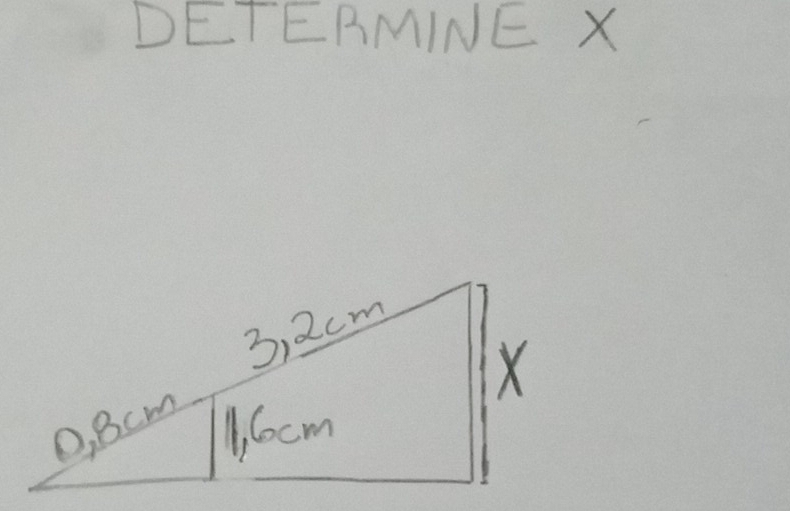 DETERMINE X
3,2cm
0,8cm
1,6cm
X